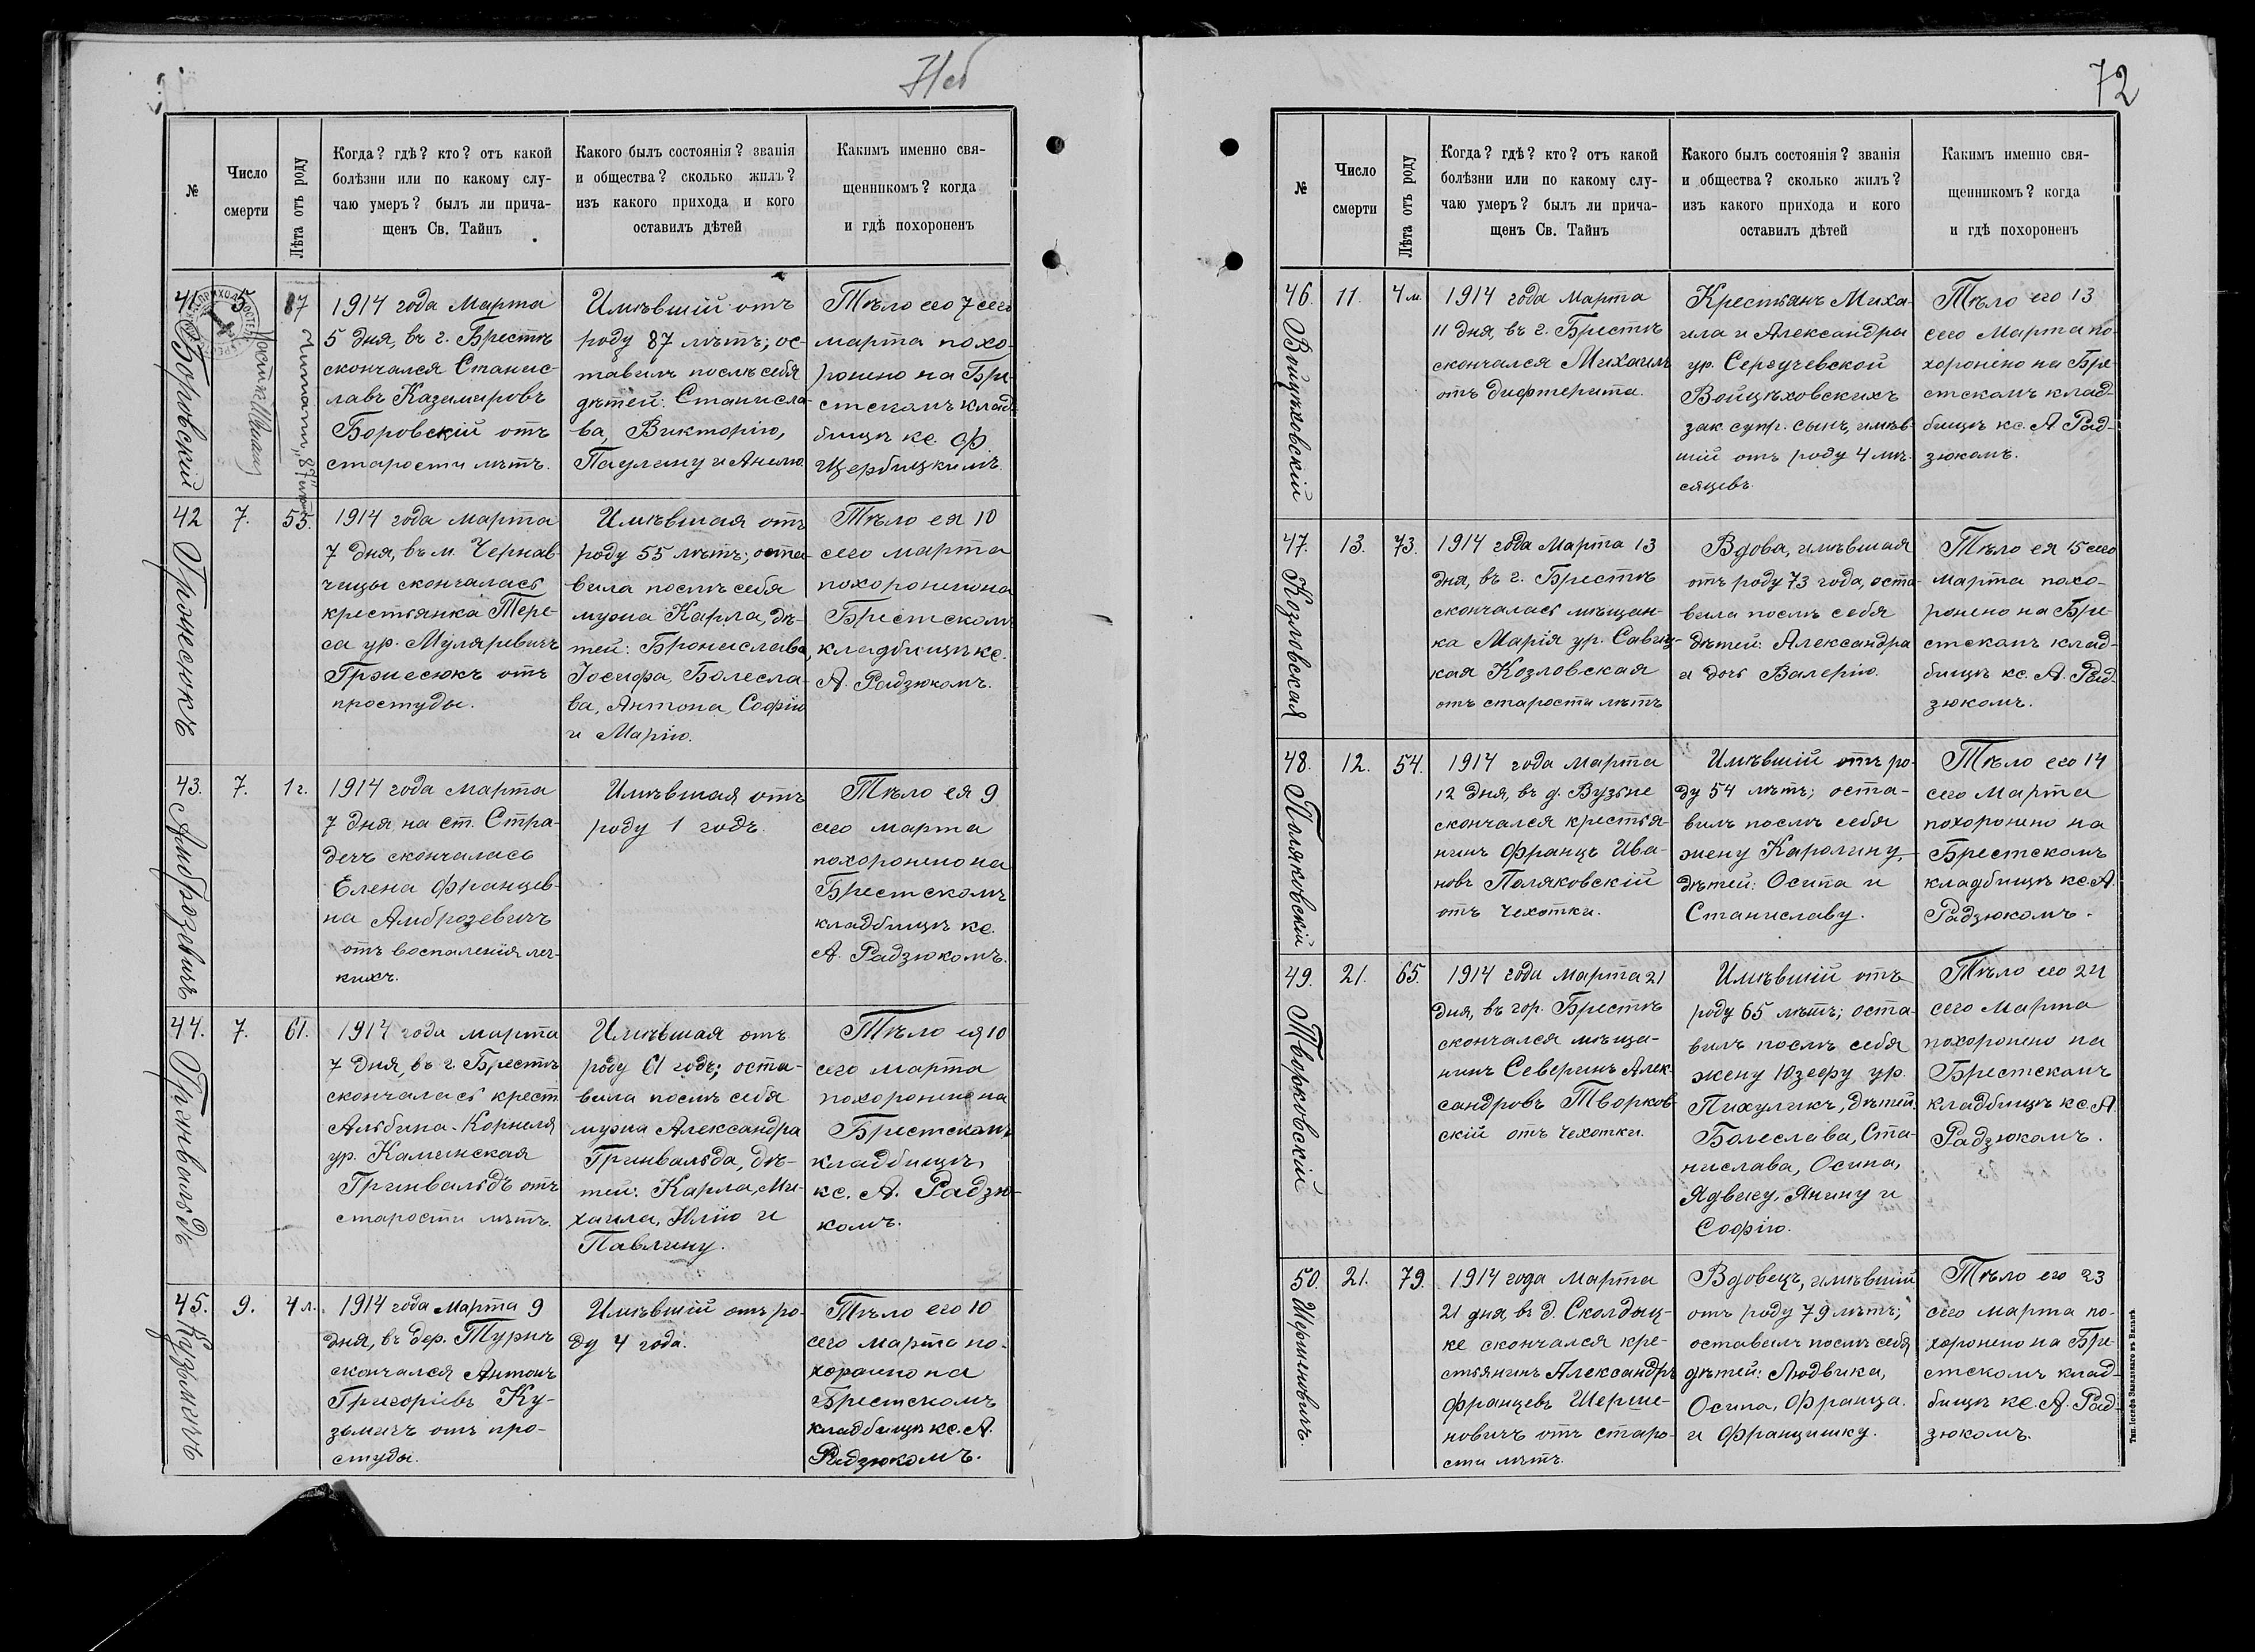 71об
№
Число
смерти
Лѣта отъ роду
Когда? гдѣ? кто? отъ какой
болѣзни или по какому слу-
чаю умеръ? былъ ли прича-
щенъ Св. Тайнъ
Какого былъ состоянія? званія
и общества? сколько жилъ?
изъ какого прихода и кого
оставилъ дѣтей
Какимъ именно свя-
щенникомъ? когда
и гдѣ похороненъ
41
Боровскій
5
87
Читать „87“ лѣтъ
1914 года Марта
5 дня, въ г. Брестѣ
скончался Станис-
лавъ Казимировъ
Боровскій отъ
старости лѣтъ.
Имѣвшій отъ
роду 87 лѣтъ; ос-
тавилъ послѣ себя
дѣтей: Станисла-
ва, Викторію,
Паулину и Анелю.
Тѣло его 7 сего
марта похо-
ронено на Бре-
стскомъ клад-
бищѣ кс. Ф.
Щербицкимъ.
42
Грэмесюкъ
7.
55.
1914 года марта
7 дня, въ м. Чернав-
чицы скончалась
крестьянка Тере-
са ур. Муляревичъ
Грэмесюкъ отъ
простуды.
Имѣвшая отъ
роду 55 лѣтъ; оста-
вила послѣ себя
мужа Карла, дѣ-
тей: Бронислава,
Іосифа, Болесла-
ва, Антона, Софію
и Марію.
Тѣло ея 10
сего марта
похоронено на
Брестскомъ
кладбищѣ кс.
А. Радзюкомъ.
43.
Амброзевичъ
7.
1 г.
1914 года марта
7 дня на ст. Стра-
дечъ скончалась
Елена Францев-
на Амброзевичъ
отъ воспаленія лег-
кихъ.
Имѣвшая отъ
роду 1 годъ.
Тѣло ея 9
сего марта
похоронено на
Брестскомъ
кладбищѣ кс.
А. Радзюкомъ.
44.
Гринвальдъ
7.
61.
1914 года марта
7 дня, въ г. Брестѣ
скончалась крест.
Альбина-Корнеля
ур. Каминская
Гринвальдъ отъ
старости лѣтъ.
Имѣвшая отъ
роду 61 годъ; оста-
вила послѣ себя
мужа Александра
Гринвальда, дѣ-
тей: Карла, Ми-
хаила, Юлію и
Павлину.
Тѣло ея 10
сего марта
похоронено на
Брестскомъ
кладбищѣ
кс. А. Радзю-
комъ.
45.
Кузьмичъ
9.
4 л.
1914 года Марта 9
дня, въ дер. Туричъ
скончался Антонъ
Григоріевъ Ку-
зьмичъ отъ про-
студы.
Имѣвшій отъ ро-
ду 4 года.
Тѣло его 10
сего Марта по-
хоронено на
Брестскомъ
кладбищѣ кс. А.
Радзюкомъ.
72
№
Число
смерти
Лѣта отъ роду
Когда? гдѣ? кто? отъ какой
болѣзни или по какому слу-
чаю умеръ? былъ ли прича-
щенъ Св. Тайнъ
Какого былъ состоянія? званія
и общества? сколько жилъ?
изъ какого прихода и кого
оставилъ дѣтей
Какимъ именно свя-
щенникомъ? когда
и гдѣ похороненъ
46.
Войцѣховскій
11.
4 м.
1914 года марта
11 дня, въ г. Брестѣ
скончался Михаилъ
отъ дифтерита.
Крестьянъ Миха-
ила и Александры
ур. Сергучевской
Войцѣховскихъ
зак. супр. сынъ, имѣв-
шій отъ роду 4 мѣ-
сяцевъ.
Тѣло его 13
сего Марта по-
хоронено на Бре-
стскомъ клад-
бищѣ кс. А. Рад-
зюкомъ.
47.
Козловская
13.
73.
1914 года Марта 13
дня, въ г. Брестѣ
скончалась мѣщан-
ка Марія ур. Савиц-
кая Козловская
отъ старости лѣтъ
Вдова, имѣвшая
отъ роду 73 года, оста-
вила послѣ себя
дѣтей: Александра
и дочь Валерію.
Тѣло ея 15 сего
марта похо-
ронено на Бре-
стскомъ клад-
бищѣ кс. А. Рад-
зюкомъ.
48.
Поляковскій
12.
54.
1914 года марта
12 дня, въ д. Вузьне
скончался крестья-
нинъ Францъ Ива-
новъ Поляковскій
отъ чехотки.
Имѣвшій отъ ро-
ду 54 лѣтъ; оста-
вилъ послѣ себя
жену Каролину,
дѣтей: Осипа и
Станиславу.
Тѣло его 14
сего Марта
похоронено на
Брестскомъ
кладбищѣ кс. А.
Радзюкомъ.
49.
Творковскій
21.
65.
1914 года марта 21
дня, въ гор. Брестѣ
скончался мѣща-
нинъ Северинъ Алек-
сандровъ Творков-
скій отъ чехотки.
Имѣвшій отъ
роду 65 лѣтъ; оста-
вилъ послѣ себя
жену Юзефу ур.
Пихуликъ, дѣтей:
Болеслава, Ста-
нислава, Осипа,
Ядвигу, Янину и
Софію.
Тѣло его 24
сего Марта
похоронено на
Брестскомъ
кладбищѣ кс. А.
Радзюкомъ.
50.
Шершеновичъ.
21.
79.
1914 года марта
21 дня, въ д. Сколдыц-
ке скончался кре-
стьянинъ Александръ
Францевъ Шерше-
новичъ отъ старо-
сти лѣтъ.
Вдовецъ, имѣвшій
отъ роду 79 лѣтъ;
оставилъ послѣ себя
дѣтей: Людвика,
Осипа, Франца
и Францишку.
Тѣло его 23
сего марта по-
хоронено на Бре-
стскомъ клад-
бищѣ кс. А. Рад-
зюкомъ.
Тип. Іосифа Завадзкаго въ Вильнѣ